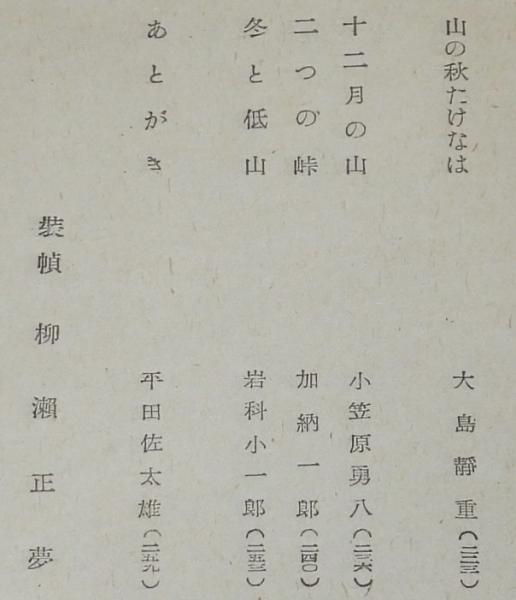 山の秋たけなは 大島靜重(二三三)
十二月の山 小笠原勇八(二三六)
二つの峠 加納一郎(二四〇)
冬と低山 岩科小一郎(二五三)
あとがき 平田佐太雄(二五九)
裝幀 柳瀨正夢